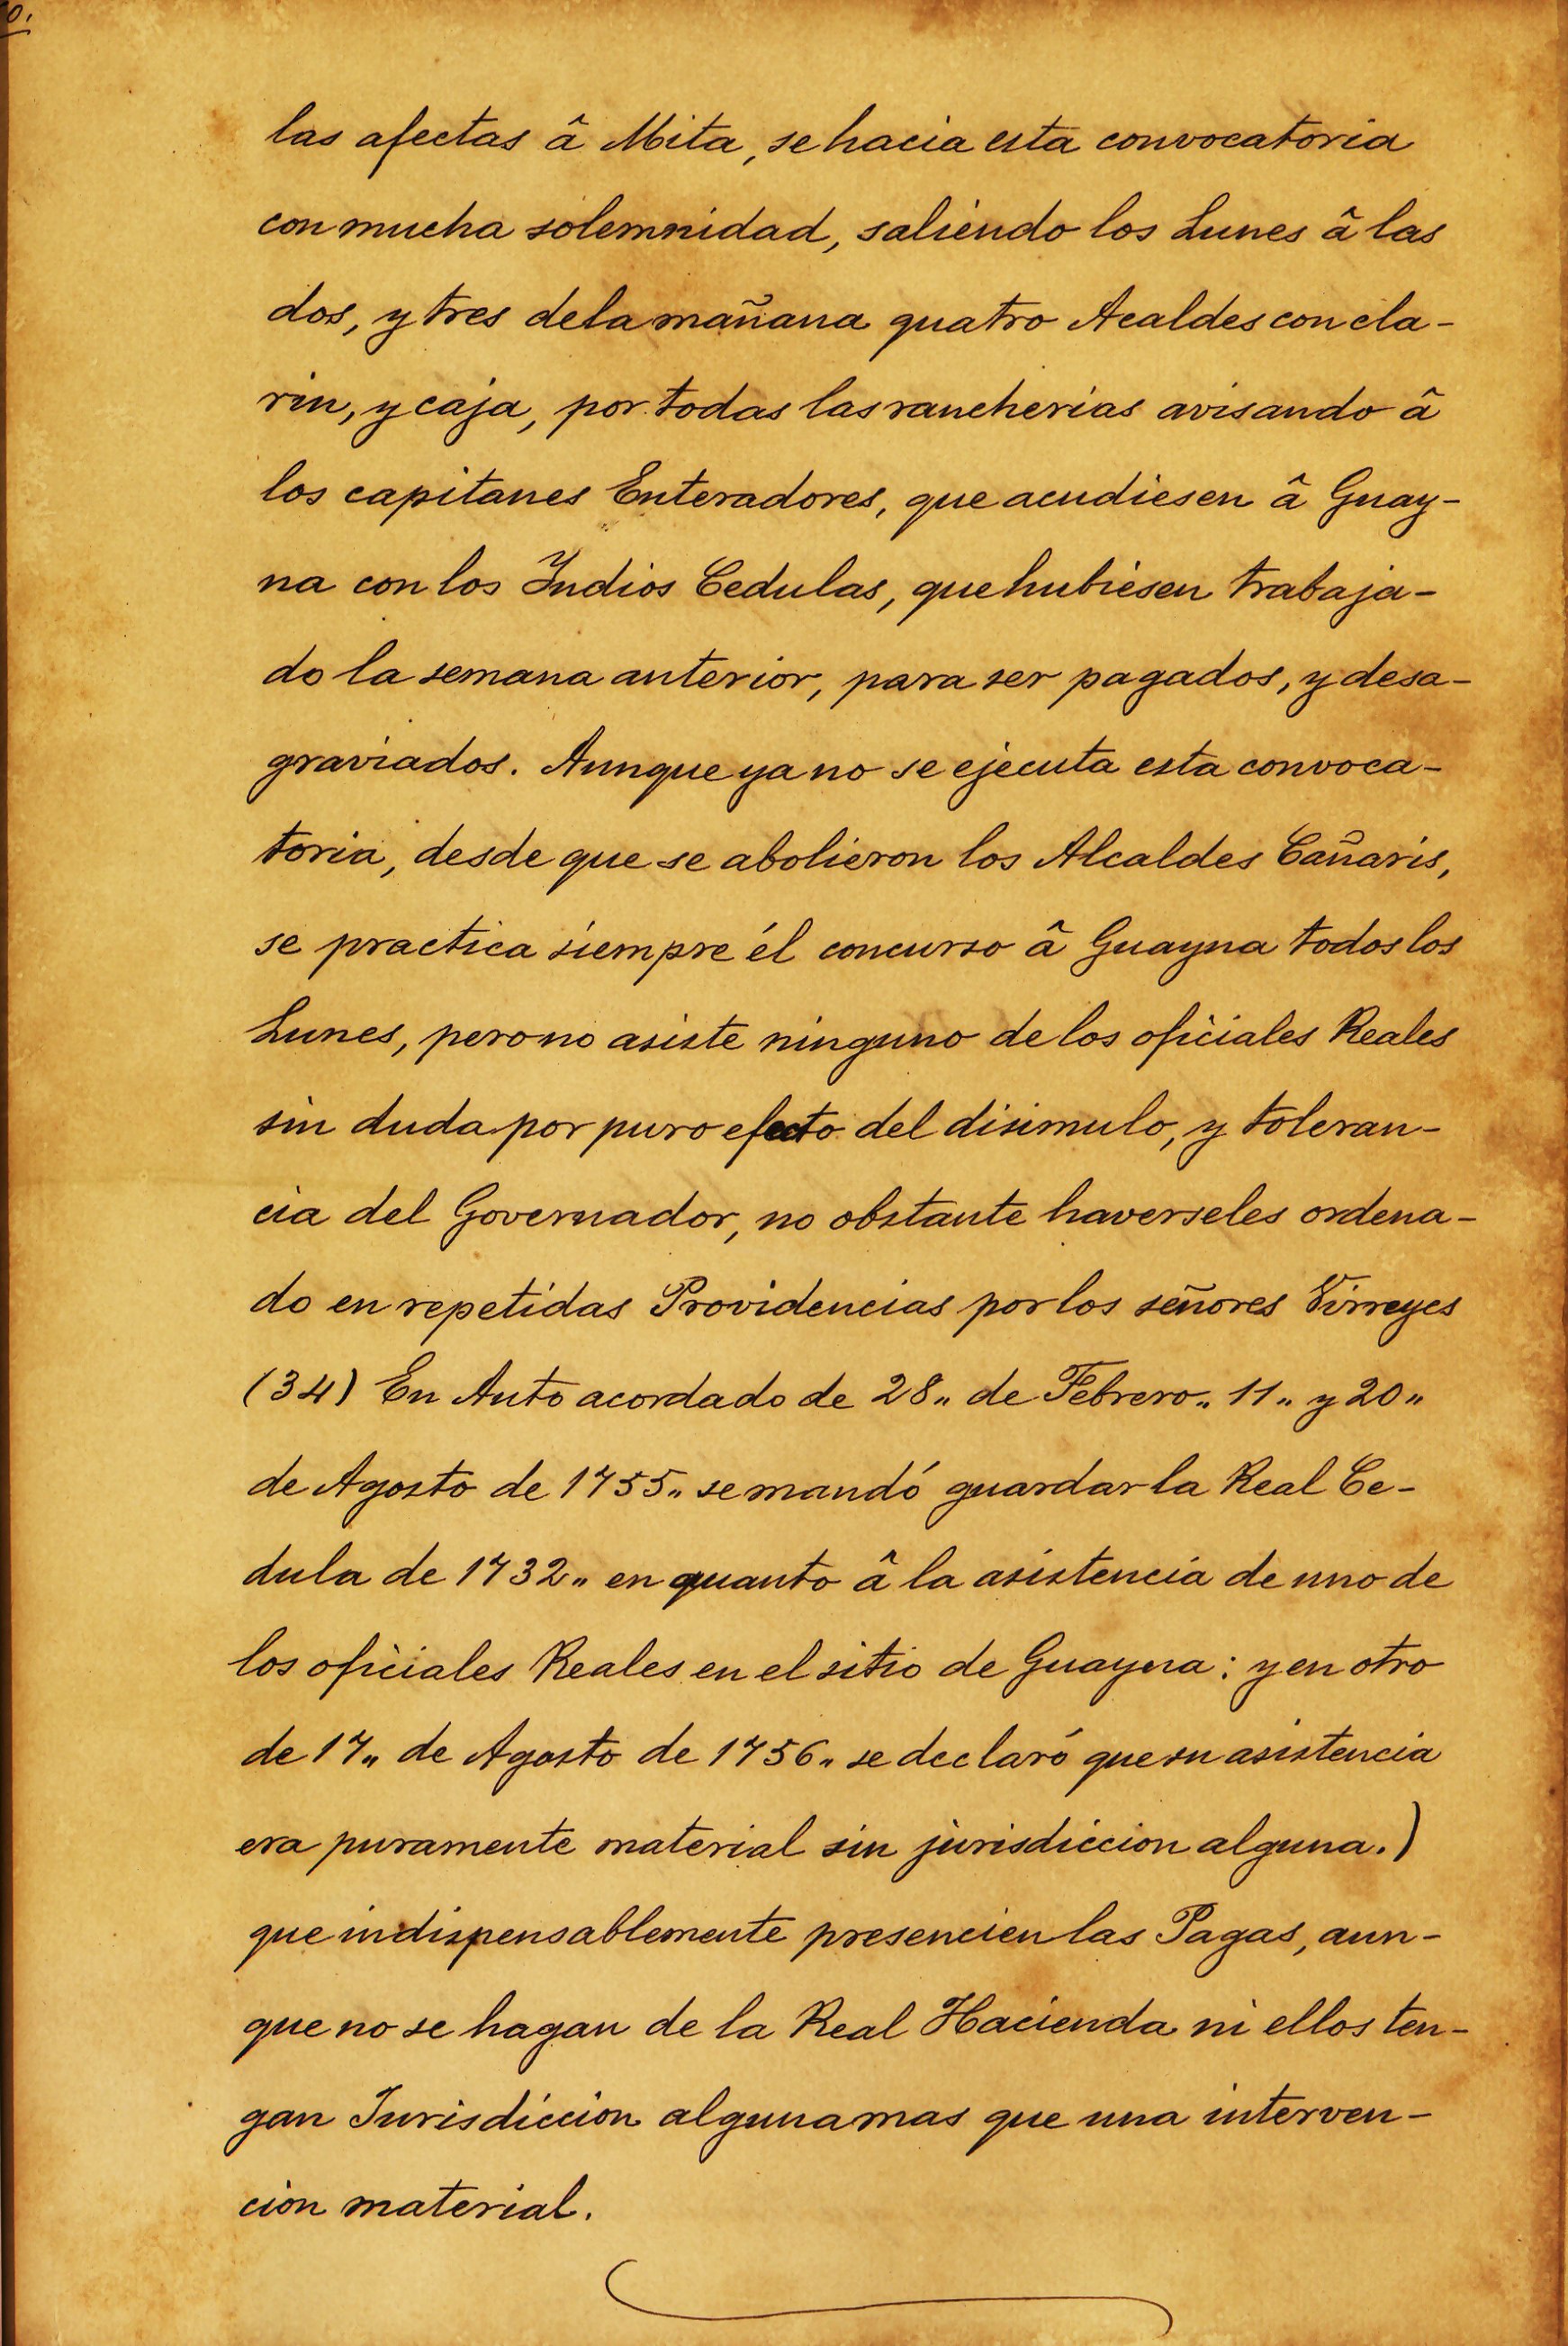 las afectas â Mita, se hacia esta convocatoria
con mucha solemnidad, saliendo los Lunes â las
dos, y tres de la mañana quatro Acaldes con cla-
rin, y caja, por todas las rancherias avisando â
los capitanes Enteradores, que acudiesen â Guay-
na con los Yndios Cedulas, que hubiesen trabaja-
do la semana anterior, para ser pagados, y desa-
graviados. Aunque ya no se ejecuta esta convoca-
toria, desde que se abolieron los Alcaldes Cañaris,
se practica siempre él concurso â Guayna todos los
Lunes, pero no asiste ninguno de los oficiales Reales
sin duda por puro efecto del disimulo, y toleran-
cia del Governador, no obstante haverseles ordena-
do en repetidas Providencias por los señores Virreyes
(34) En Auto acordado de 28„ de Febrero„ 11„ y 20„
de Agosto de 1755„ se mandó guardar la Real Ce-
dula de 1732„ en quanto â la asistencia de uno de
los oficiales Reales en el sitio de Guayna: y en otro
de 17„ de Agosto de 1756„ se declaró que su asistencia
era puramente material sin jurisdiccion alguna.)
que indispensablemente presencien las Pagas, aun-
que no se hagan de la Real Hacienda ni ellos ten-
gan Jurisdiccion alguna mas que una interven-
cion material.